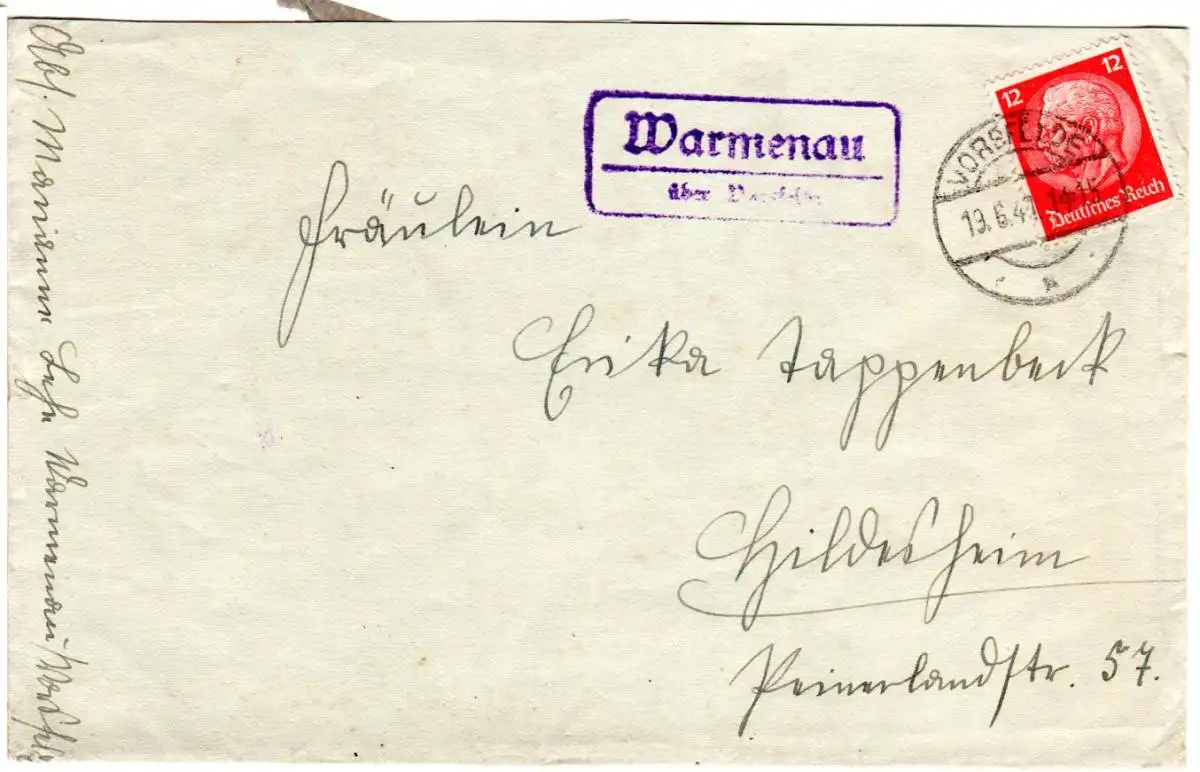 Warmenau
über Vorsfelde
12
12
Deutsches Reich
VORSFELDE
19.6.4
Fräulein
Erika Tappenbeck
Hildesheim
Peinerlandstr. 57.
Abs. Marianne Warmenau/Vorsfelde